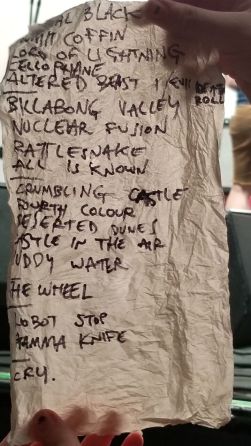 BLACK
COFFIN
LORD OF LIGHTNING
CELLOPHANE
ALTERED BEAST I / EVIL DEATH
ROLL
BILLABONG VALLEY
NUCLEAR FUSION
RATTLESNAKE
ALL IS KNOWN
CRUMBLING CASTLE
FOURTH COLOUR
DESERTED DUNES
ASTLE IN THE AIR
UDDY WATER
HE WHEEL
ROBOT STOP
GAMMA KNIFE
CRY.